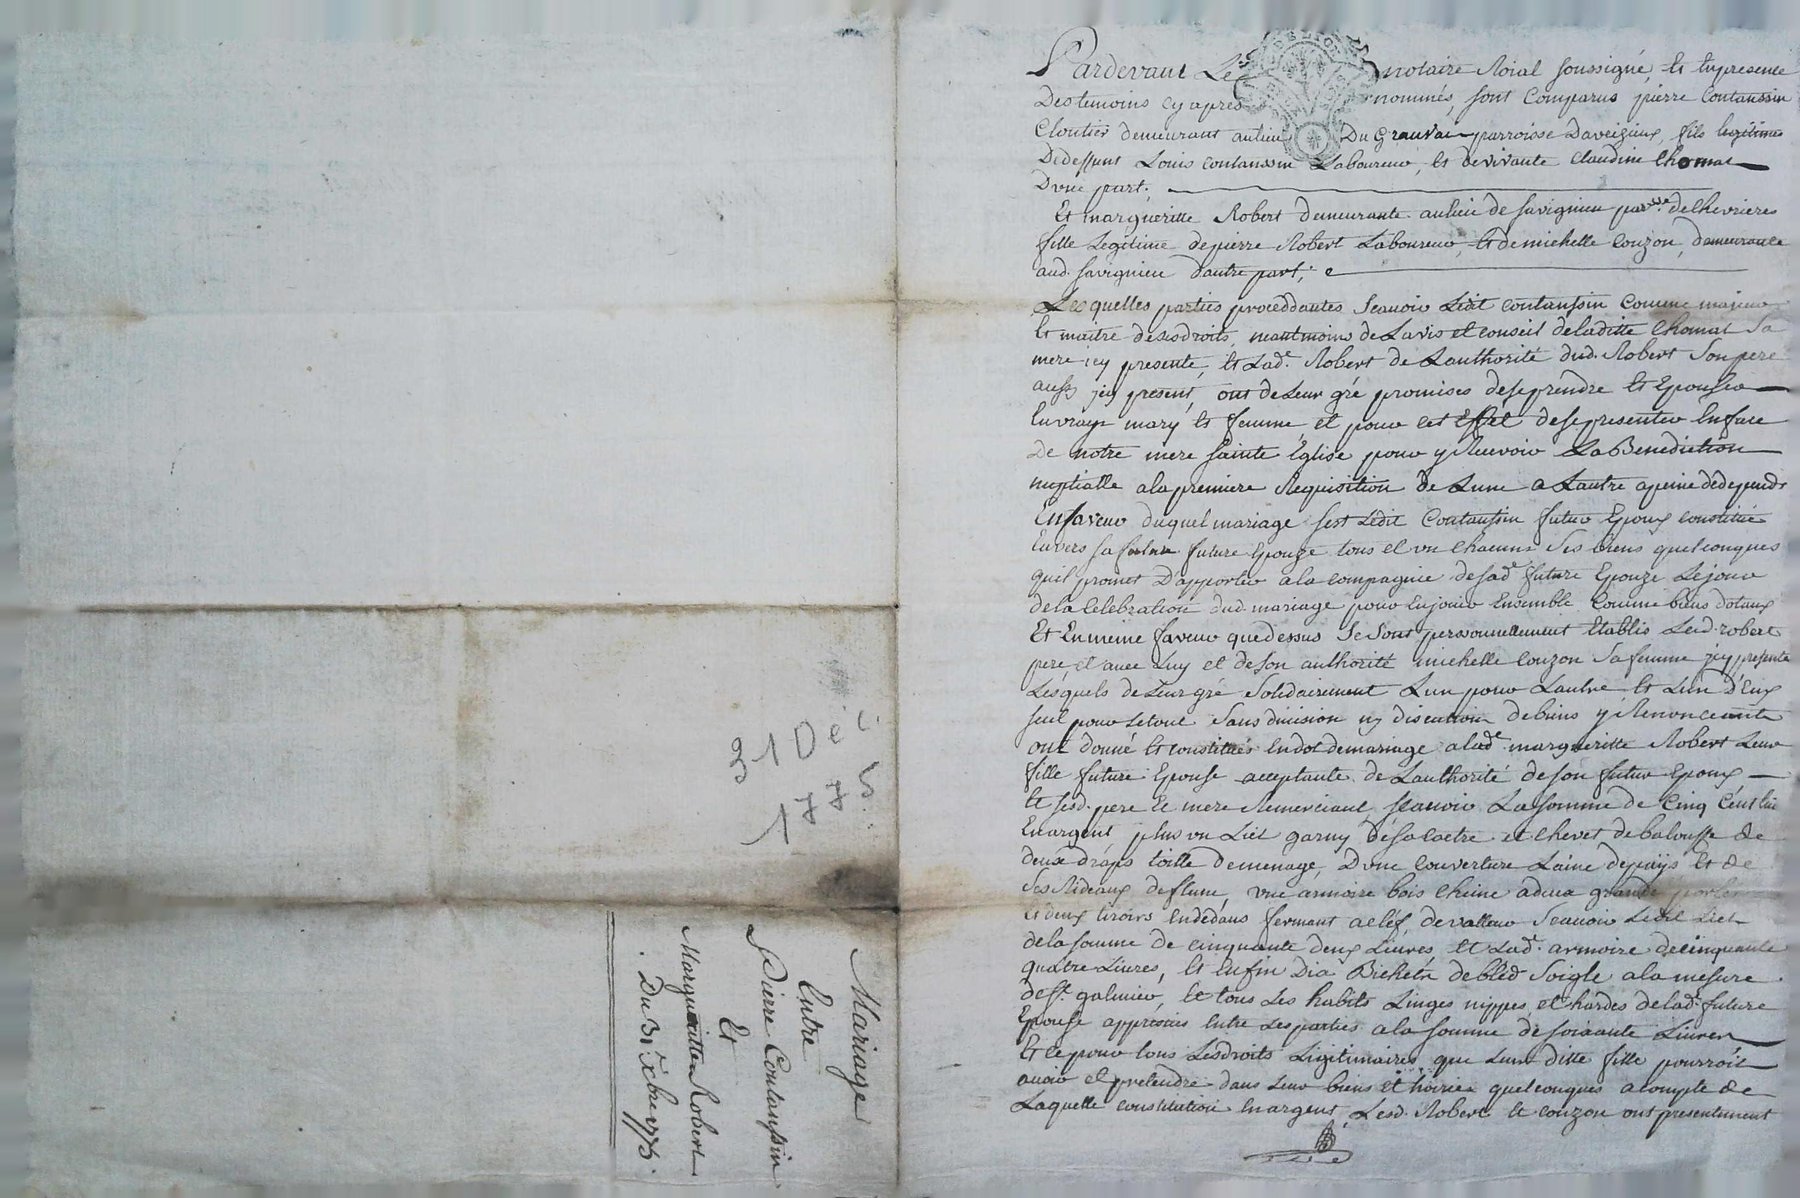 31 Déc.
1775
Mariage
Entre
Pierre Contanssin
Et
Margueritte Robert
Du 31 Xbre 1775.
DE LYON
Pardevant Le notaire Roial soussigné, et en presence
Des temoins cy apres nommés, sont comparus pierre Contanssin
Cloutier demeurant au lieu Du Grauvai parroisse Daveizieux, fils legitime
De deffunt Louis contanssin Laboureur, et de vivante Claudine Chomat
D'une part;
Et margueritte Robert demeurante au lieu de savignieu parsse. de Chevrieres
fille Legitime de pierre Robert Laboureur, et de michelle Couzon, demeurante
aud. savignieu d'autre part;
Lesquelles parties proceddantes, scauoir Ledit contanssin comme majeur
et maitre de ses droits, neantmoins de Lavis et conseil de laditte Chomat sa
mere icy presente, et Lade. Robert de Lauthorité dud. Robert son pere
aussy icy present, ont de Leur gré promises de se prendre et Epouser
en vrays mary et femme, et pour cet Effet de se presenter en face
De notre mere sainte Eglise pour y Recevoir La Benediction
nuptialle a la premiere Requisition de Lune a Lautre a peine de depends
En faveur duquel mariage s'est Ledit Contanssin futur Epoux constitué
Envers sa future Epouze tous et un chacuns ses biens quelconques
qu'il promet D'apporter a la compagnie de sade. future Epouze Le jour
de la Celebration dud. mariage pour en jouir Ensemble comme biens dotaux
Et En meme faveur que dessus se sont personnellement Etablis Led. robert
pere, et avec Luy et de son authorité michelle Couzon sa femme icy presente
Lesquels de Leur gré solidairement L'un pour Lautre et L'un d'Eux
seul pour Le tout sans division ny discution de biens y Renonceants
ont donné et constitués en dot de mariage a lade. margueritte Robert Leur
fille future Epouse acceptante de Lauthorité de son futur Epoux
et sesd. pere et mere Remerciant, scauoir La somme de Cinq Cens
En argent plus un Lict garny de sa et chevet de balouffe de
deux draps toille de menage, D'une couverture Laine de pays et de
ses Rideaux de une armoire bois chene a deux grandes
et deux tiroirs en dedans fermant a clef, de valleur scauoir Ledit Lict
de la somme de cinquante deux Livres, et Lade. armoire de cinquante
quatre Livres, et Enfin Dix Bichets de bled soigle a la mesure
de St. galmier, et tous Les habits Linges nippes et hardes de lade. future
Epouse appreciés Entre Les parties a la somme de soixante Livres
Et ce pour tous Les droits Legitimaires que Leur ditte fille pourroit
avoir et pretendre dans Leur biens et hoiries quelconques a compte de
Laquelle constitution En argent, Lesd. Robert et couzon ont presentement